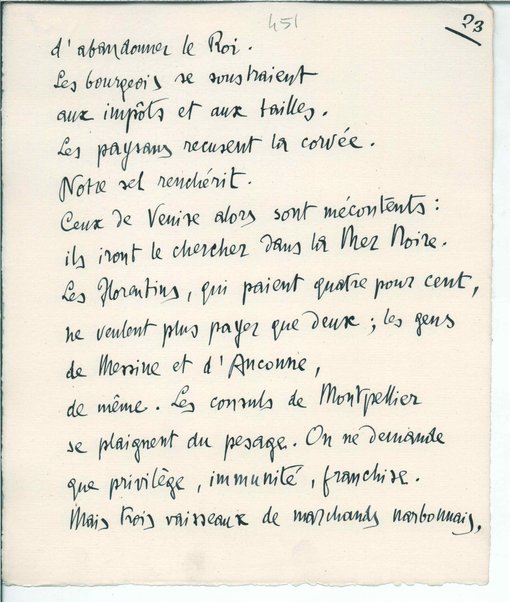 451
23
d'abandonner le Roi.
Les bourgeois se soustraient
aux impôts et aux tailles.
Les paysans recusent la corvée.
Notre sel renchérit.
Ceux de Venise alors sont mécontents :
ils iront le chercher dans la Mer Noire.
Les Florentins, qui paient quatre pour cent,
ne veulent plus payer que deux ; les gens
de Messine et d'Anconne,
de même. Les consuls de Montpellier
se plaignent du pesage. On ne demande
que privilège, immunité, franchise.
Mais trois vaisseaux de marchands narbonnais,